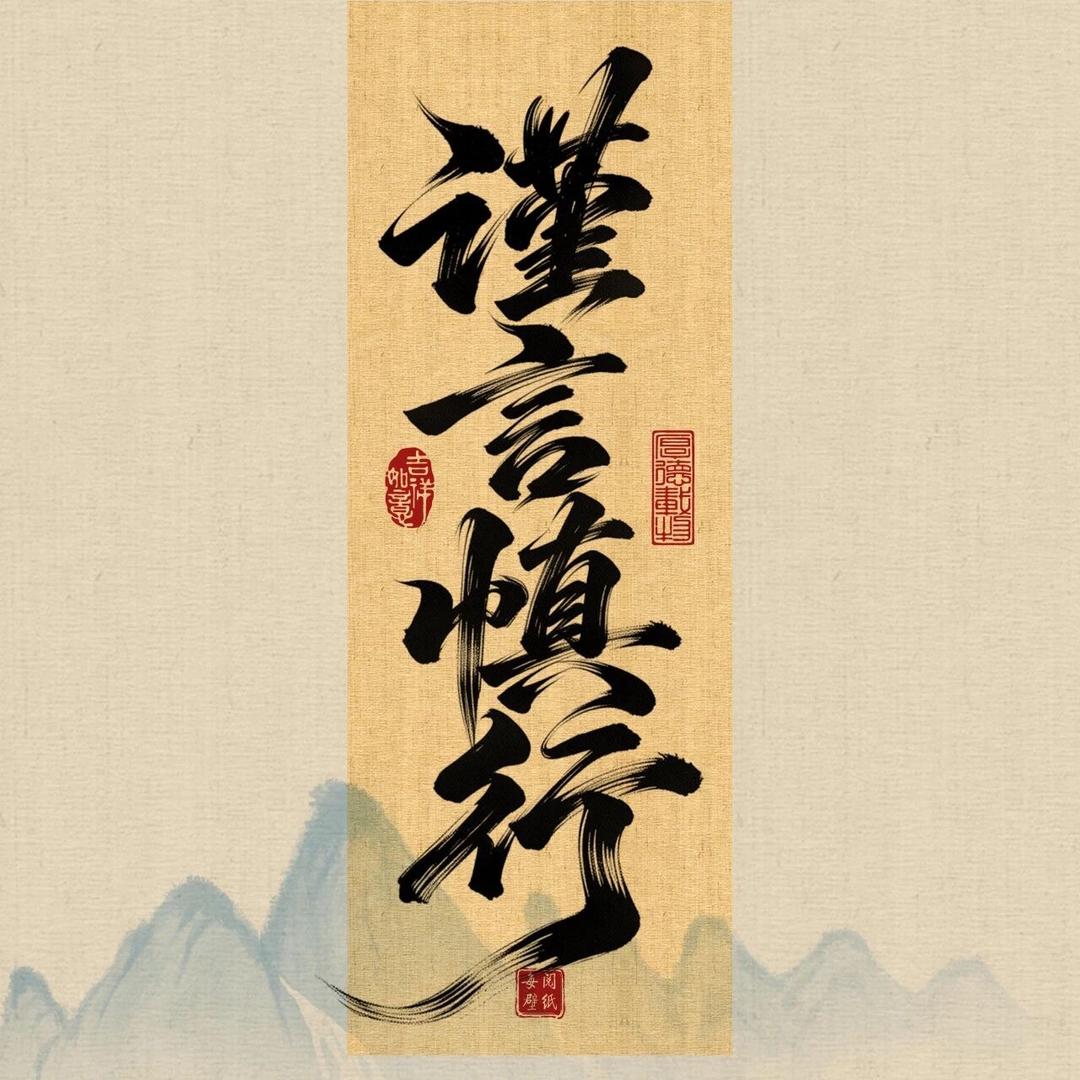 谨言慎行
厚德載物
吉祥如意
阅纸每壁